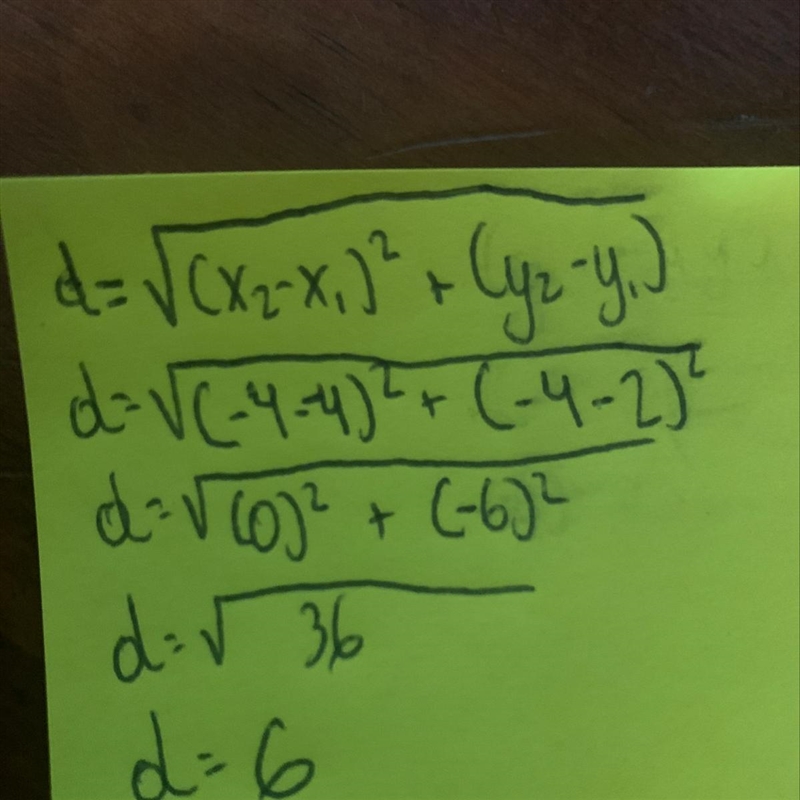 d=√(x₂-x₁)² + (y₂-y₁)
d=√(-4-4)² + (-4-2)²
d=√(0)² + (-6)²
d=√36
d=6